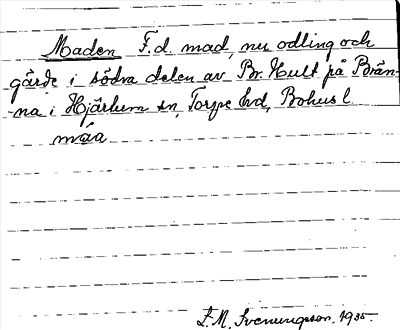 Maden F.d. mad, nu odling och
gärde i södra delen av Br. Hult på Brän-
na i Hjärtum sn, Torpe hd, Bohusl.
måa
L. M. Svenungsson. 1935.